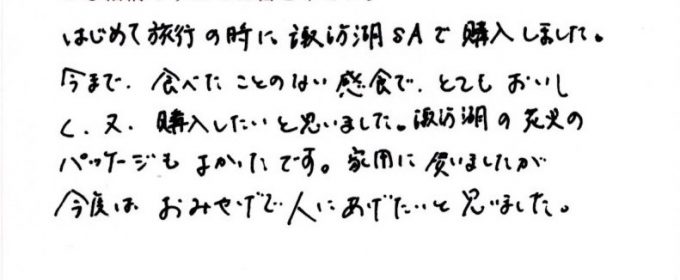 はじめて旅行の時に諏訪湖SAで購入しました。
今まで、食べたことのない感食で、とてもおいし
く、又、購入したいと思いました。諏訪湖の花火の
パッケージもよかったです。家用に買いましたが
今度はおみやげで人にあげたいと思いました。